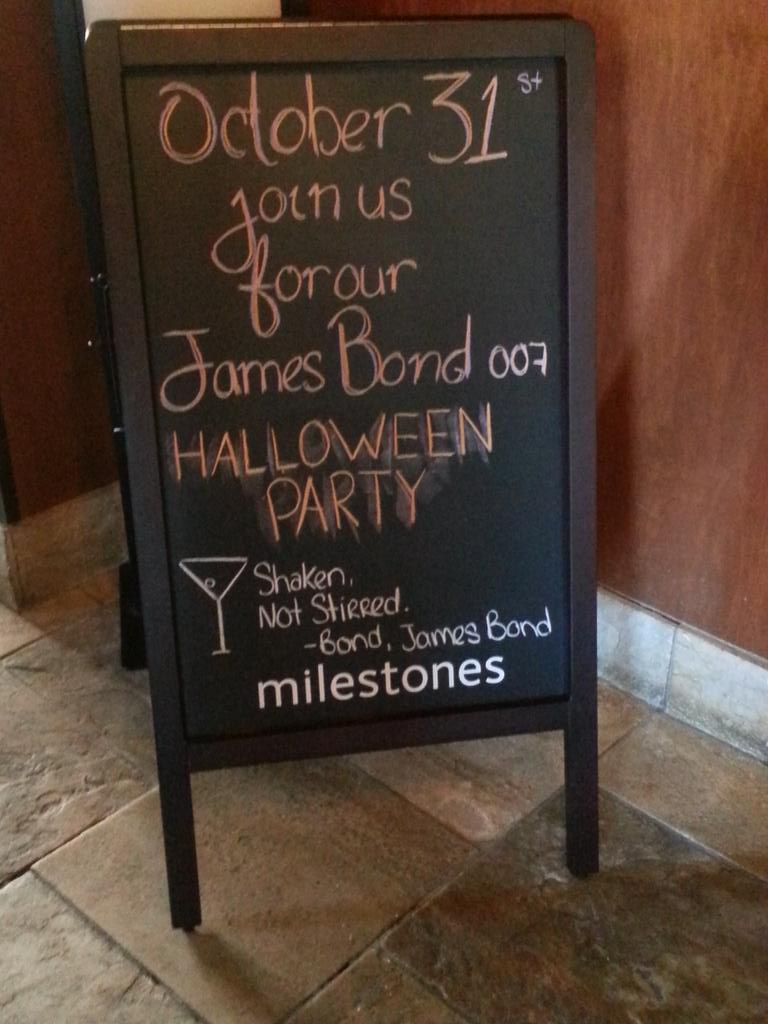 October 31st
join us
for our
James Bond 007
HALLOWEEN
PARTY
Shaken,
Not Stirred.
-Bond, James Bond
milestones